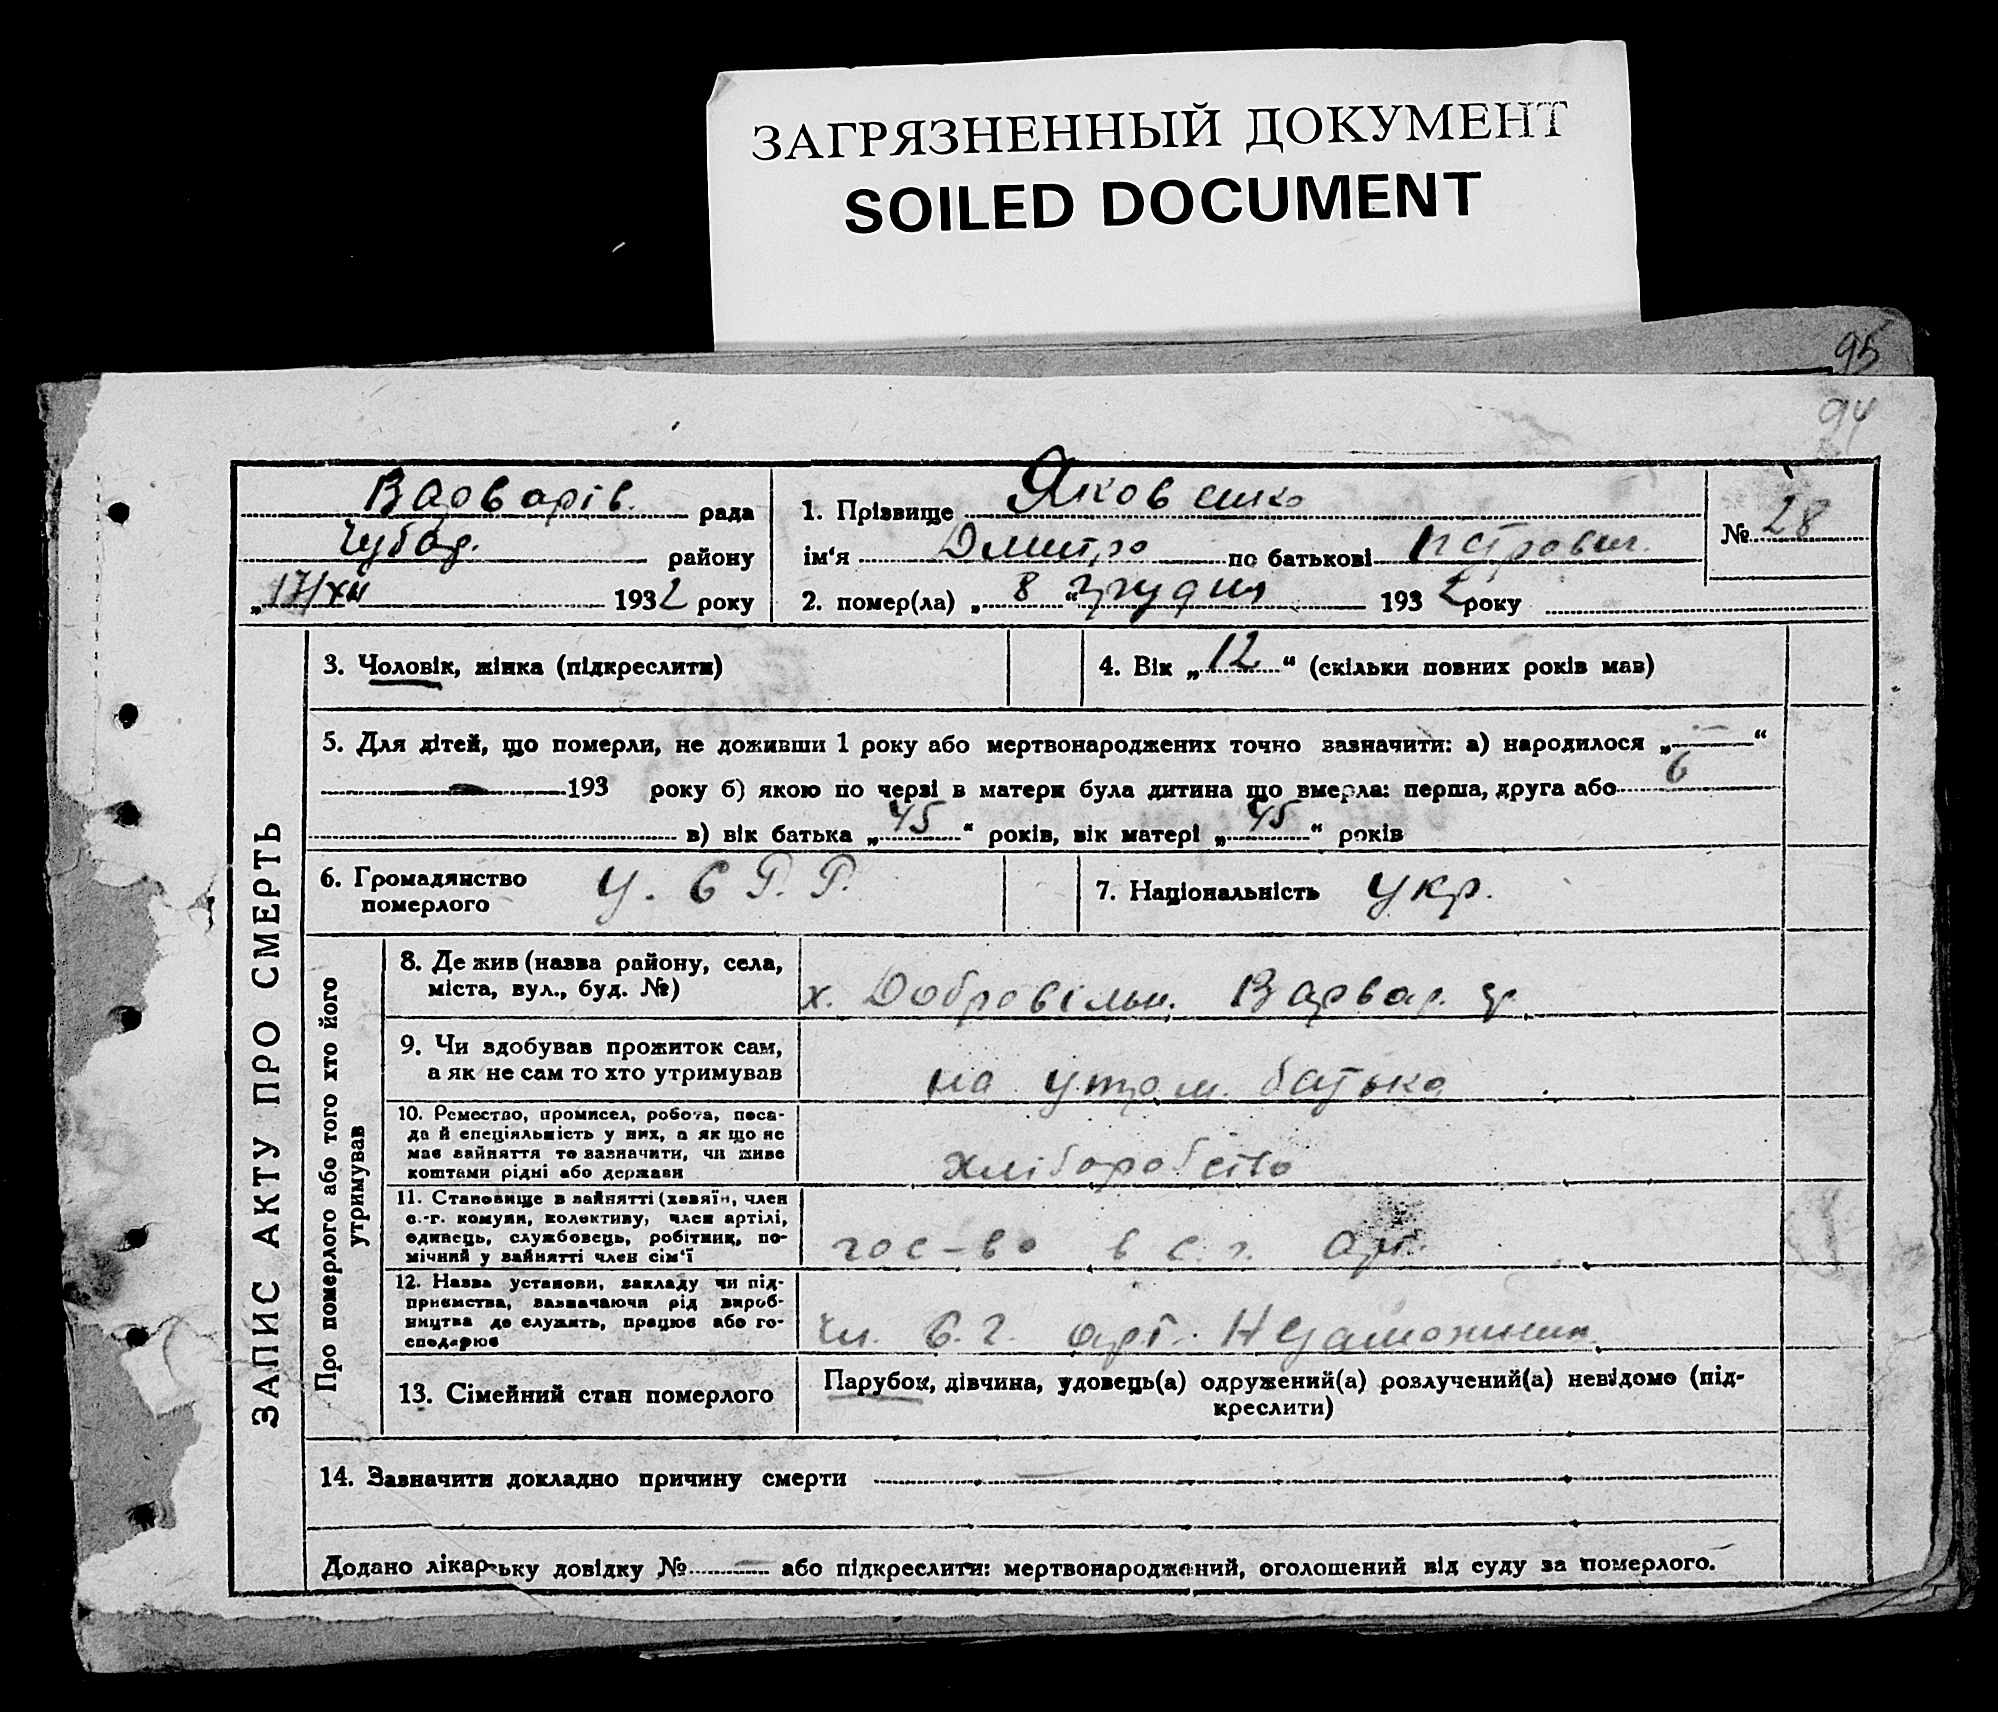 ЗАГРЯЗНЕННЫЙ ДОКУМЕНТ
SOILED DOCUMENT
95
94
ЗАПИС АКТУ ПРО СМЕРТЬ
Варварів. рада
Чубар. району
„17/XII 1932 року
1. Прізвище Яковенко
ім‘я Дмитро по батькові Петрович.
2. помер(ла) „8“ грудня 1932 року
№ 28
3. Чоловік, жінка (підкреслити)
4. Вік „12“ (скільки повних років мав)
5. Для дітей, що померли, не доживши 1 року або мертвонароджених точно зазначити: а) народилося „—“
— 193 року б) якою по черзі в матери була дитина що вмерла: перша, друга або 6
в) вік батька „45“ років, вік матері „45“ років
6. Громадянство
померлого
У. С Р. Р.
7. Національність Укр.
Про померлого або того хто його
утримував
8. Де жив (назва району, села,
міста, вул., буд. №)
х. Добровільн. Варвар.
9. Чи здобував прожиток сам,
а як не сам то хто утримував
на утрим. батька
10. Ремество, промисел, робота, поса-
да й спеціяльність у них, а як що не
має зайняття то зазначити, чи живе
коштами рідні або держави
хліборобство
11. Становище в зайнятті (хазяїн, член
с.-г. комуни, колективу, член артілі,
одинець, службовець, робітник, по-
мічний у зайнятті член сім‘ї
гос-во в с. г. арт.
12. Назва установи, закладу чи під-
приємства, зазначаючи рід вироб-
ництва де служить, працює або го-
сподарює
чл. с. г. арт. Незаможник
13. Сімейний стан померлого
Парубок, дівчина, удовець(а) одружений(а) розлучений(а) невідомо (під-
креслити)
14. Зазначити докладно причину смерти —
Додано лікарську довідку № — або підкреслити: мертвонароджений, оголошений від суду за померлого.